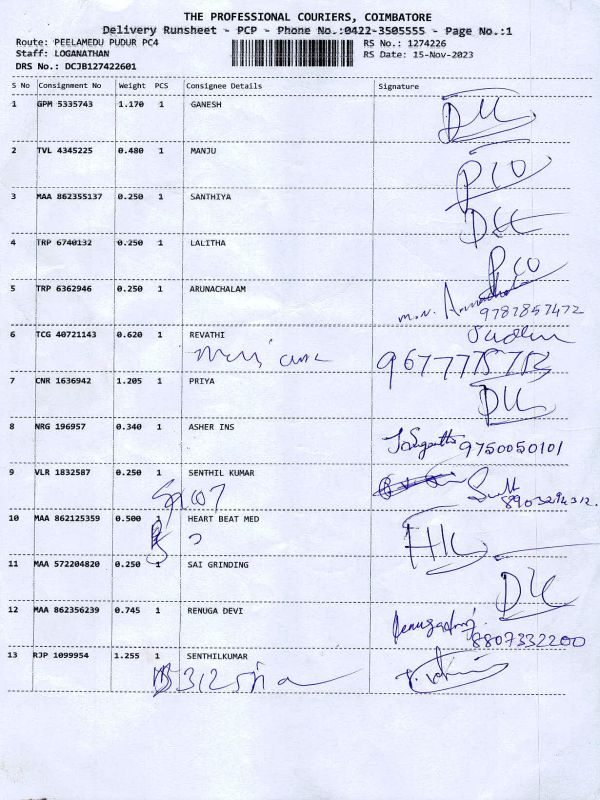 THE PROFESSIONAL COURIERS, COIMBATORE
Delivery Runsheet - PCP - Phone No.:0422-3505555 - Page No.:1
Route: PEELAMEDU PUDUR PC4 RS No.: 1274226
Staff: LOGANATHAN RS Date: 15-Nov-2023
DRS No.: DCJB127422601
S No Consignment No Weight PCS Consignee Details Signature
1 GPM 5335743 1.170 1 GANESH
2 TVL 4345225 0.480 1 MANJU
3 MAA 862355137 0.250 1 SANTHIYA
4 TRP 6740132 0.250 1 LALITHA
5 TRP 6362946 0.250 1 ARUNACHALAM
9787857472
6 TCG 40721143 0.620 1 REVATHI
7 CNR 1636942 1.205 1 PRIYA
8 NRG 196957 0.340 1 ASHER INS
9750050101
9 VLR 1832587 0.250 1 SENTHIL KUMAR
8903294312
10 MAA 862125359 0.500 1 HEART BEAT MED
11 MAA 572204820 0.250 1 SAI GRINDING
12 MAA 862356239 0.745 1 RENUGA DEVI
8807332200
13 RJP 1099954 1.255 1 SENTHILKUMAR